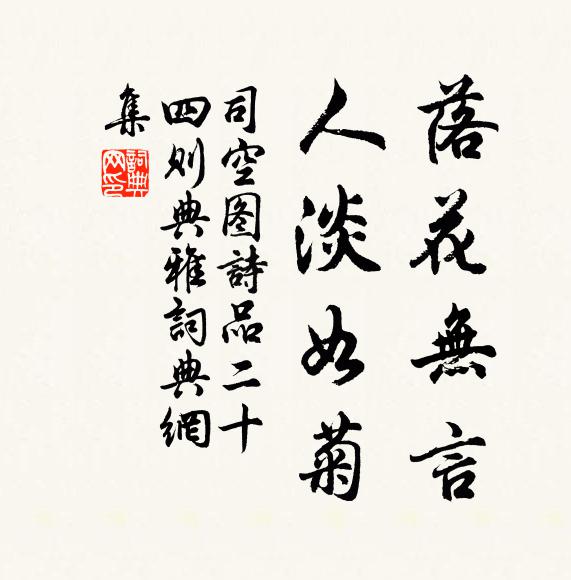 落花無言
人淡如菊
司空图詩品二十
四则典雅詞典網
集
詞典网印